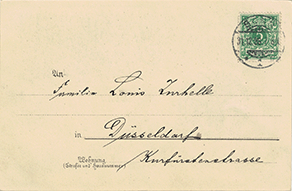 An
Familie Louis Zurhelle
in Düsseldorf
Wohnung
(Straße und Hausnummer)
Kurfürstenstrasse